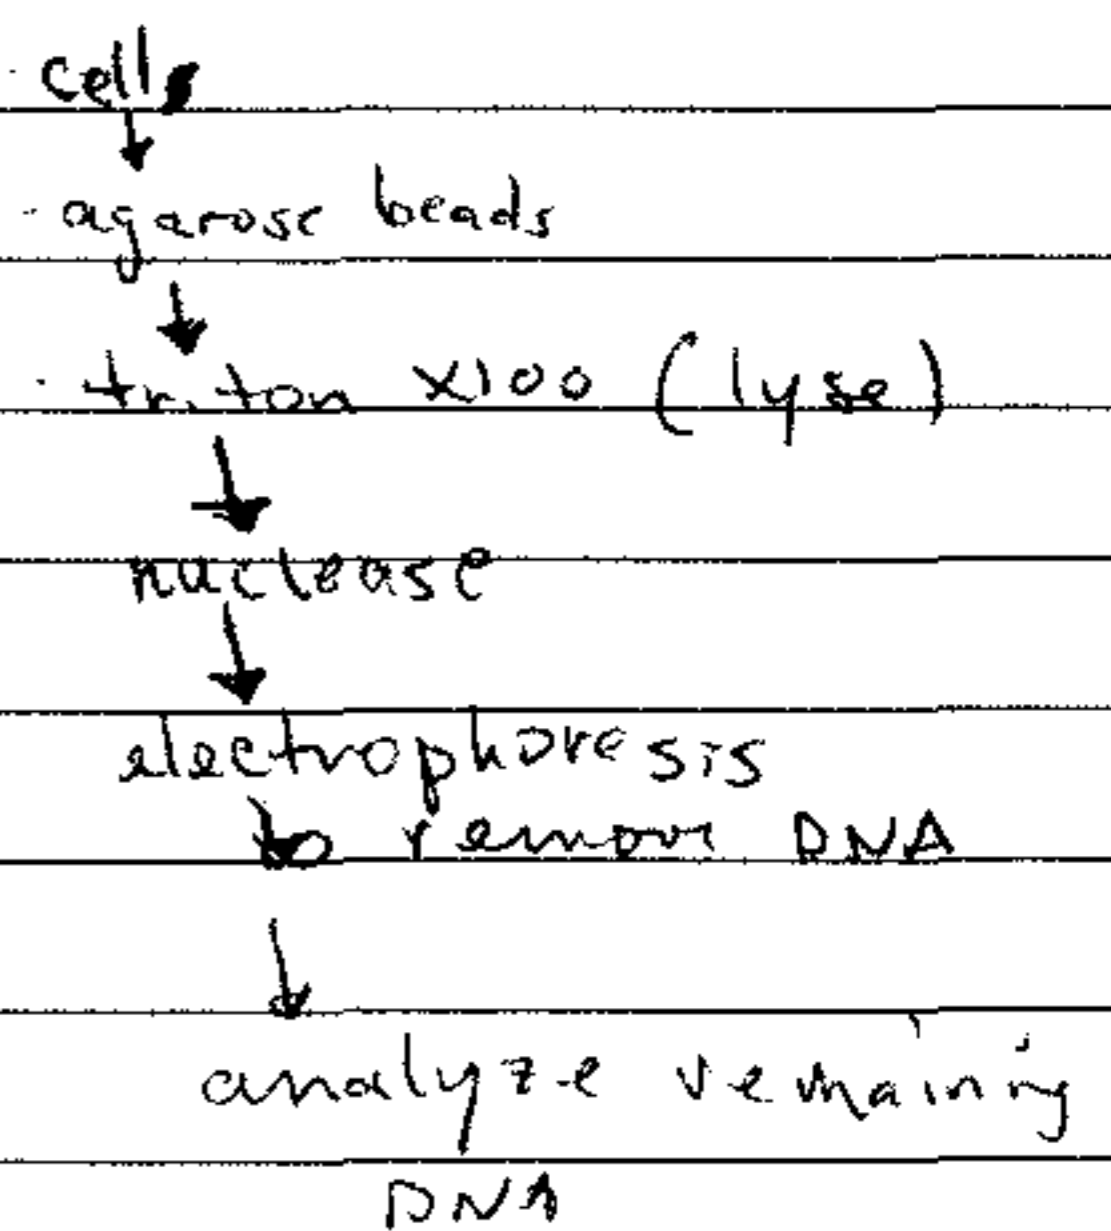 cells
↓
agarose beads
↓
triton X100 (lyse)
↓
nuclease
↓
electrophoresis
to remove DNA
↓
analyze remaining
DNA